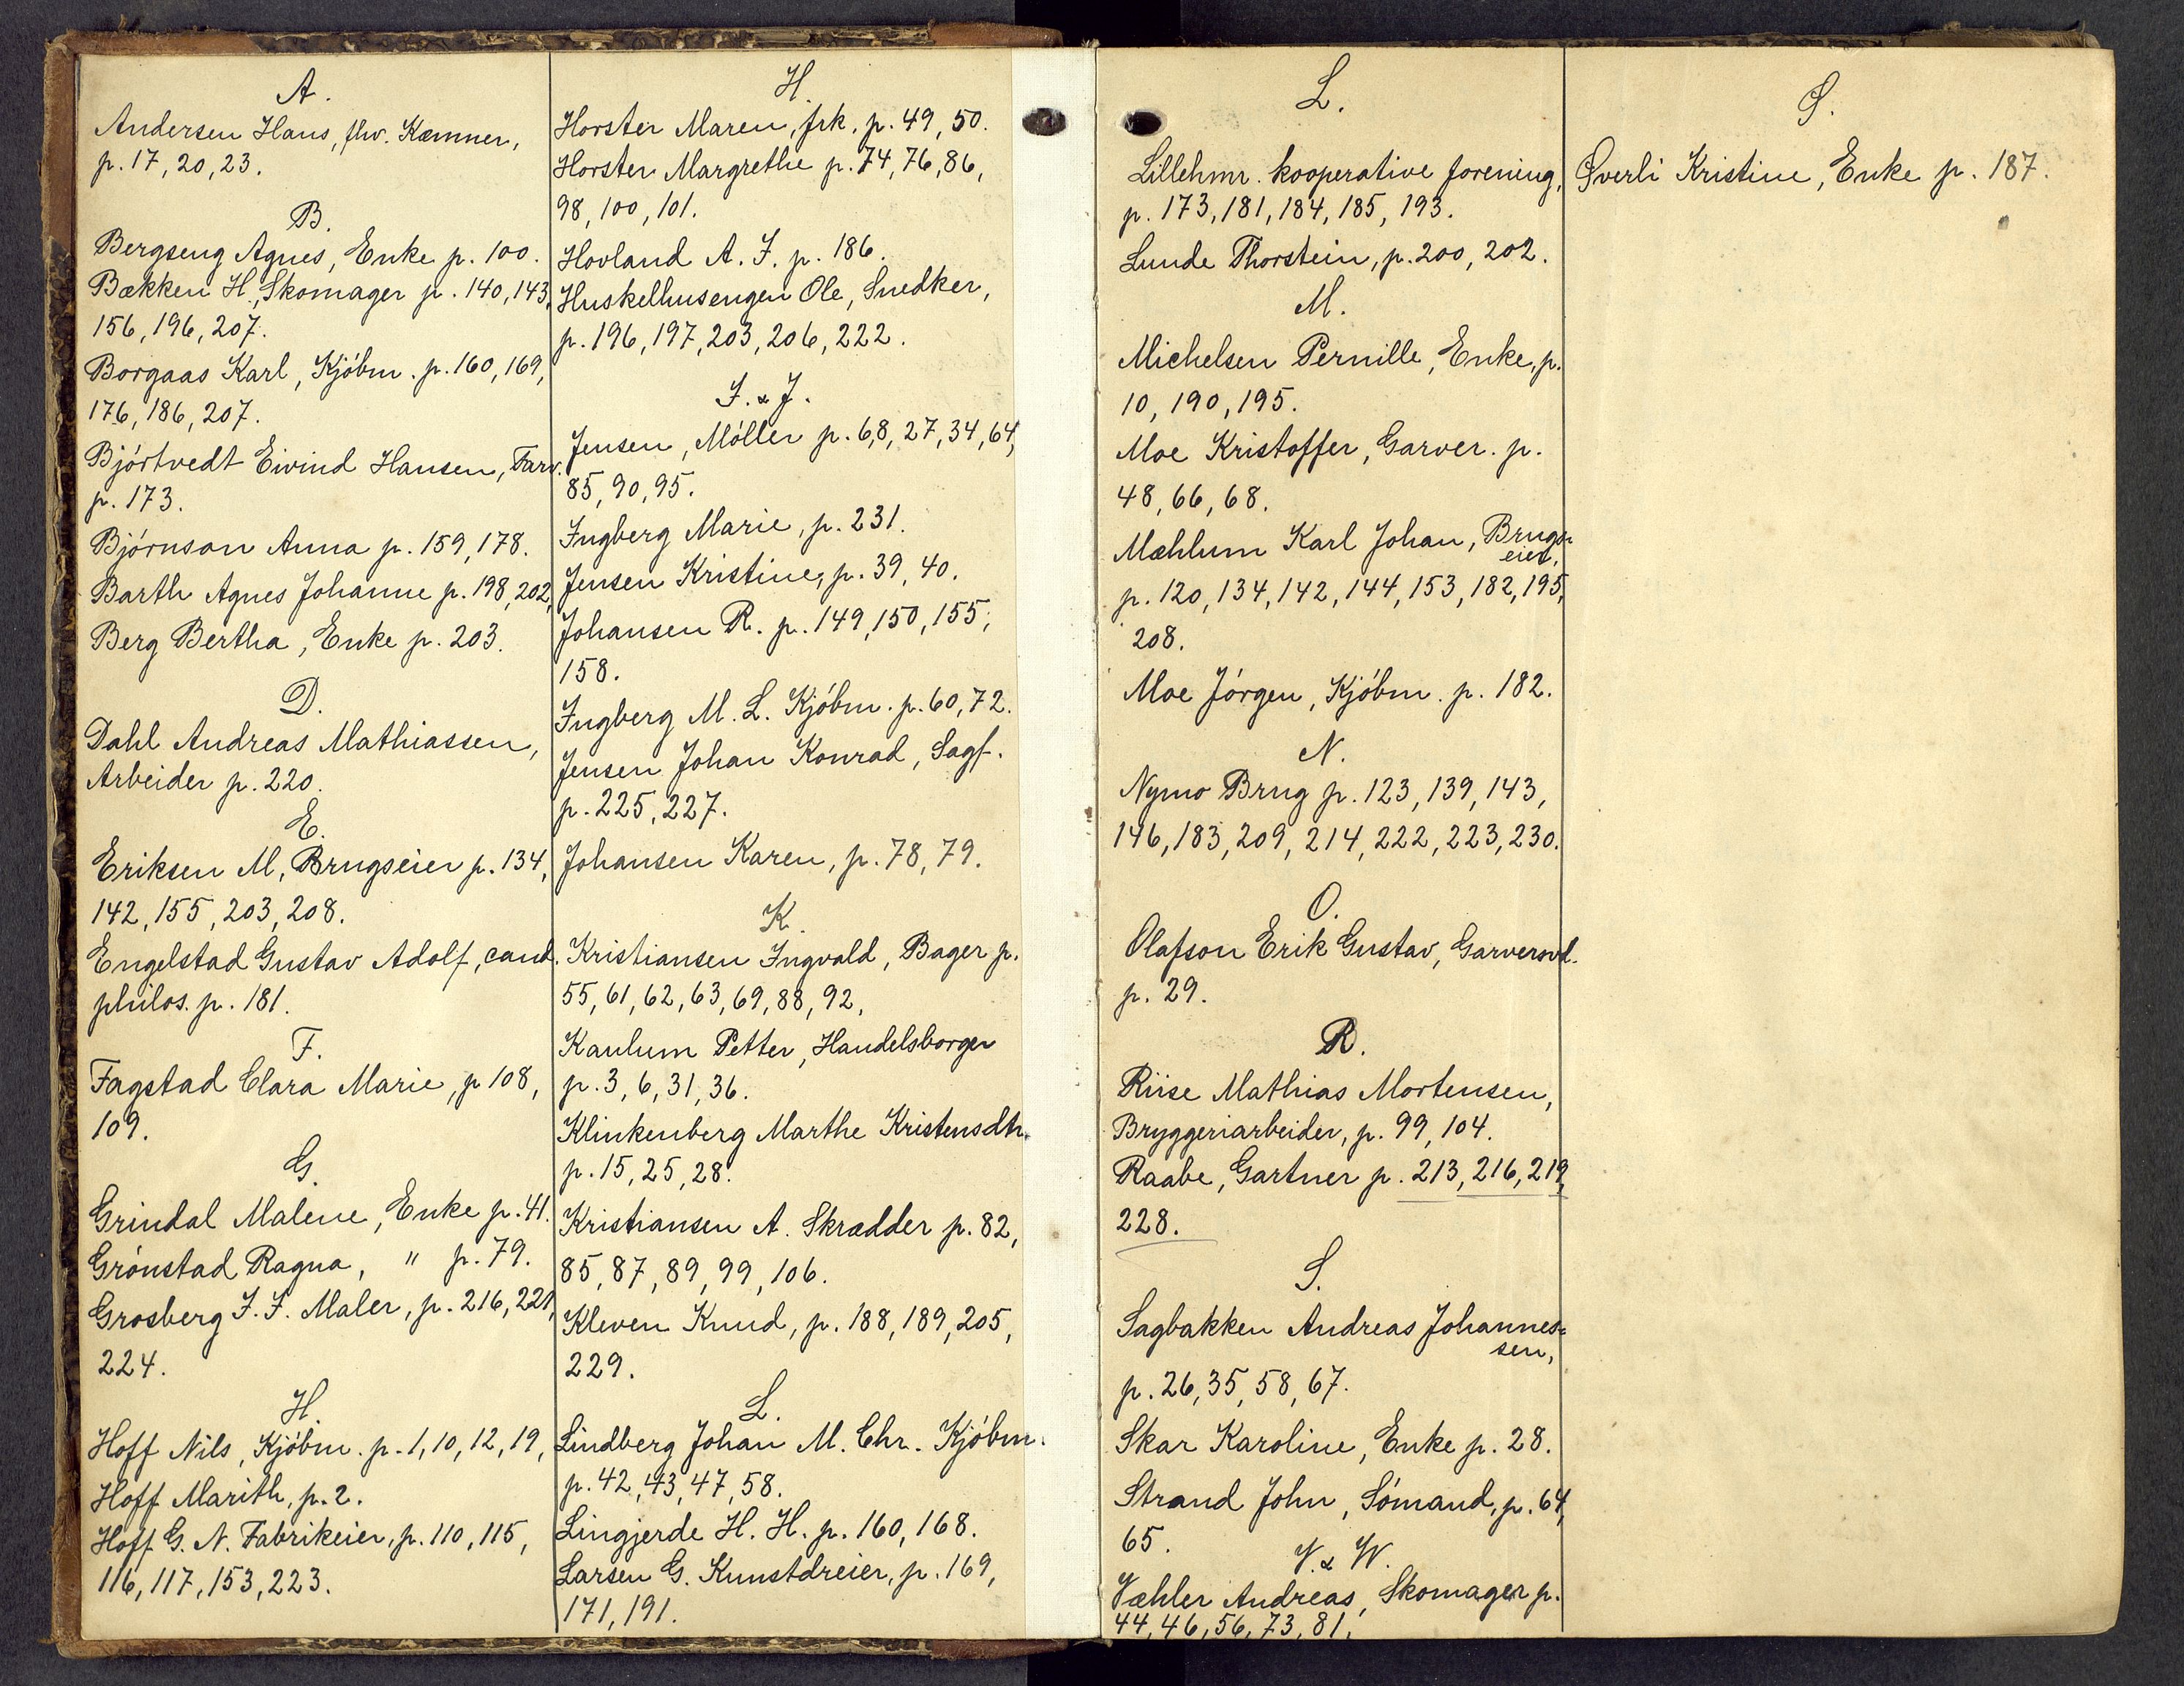 A.
Andersen Hans, fhv. Kæmner,
p. 17, 20, 23.
B.
Bergseng Agnes, Enke p. 100.
Bækken H., Skomager p. 140, 143,
156, 196, 207.
Borgaas Karl, Kjöbm. p. 160, 169,
176, 186, 207.
Björtvedt Eivind Hansen, Farv.
p. 173.
Björnson Anna p. 159, 178.
Barth Agnes Johanne p. 198, 202,
Berg Bertha, Enke p. 203.
D.
Dahl Andreas Mathiassen,
Arbeider p. 220.
E.
Eriksen M, Brugseier p. 134,
142, 155, 203, 208.
Engelstad Gustav Adolf, cand.
philos. p. 181.
F.
Fagstad Clara Marie, p 108,
109.
G.
Grindal Malene, Enke p. 41.
Grönstad Ragna, " p. 79.
Grosberg J. F. Maler, p. 216, 221,
224.
H.
Hoff Nils, Kjöbm. p. 1, 10, 12, 19,
Hoff Marith, p. 2.
Hoff G. N. Fabrikeier, p. 110, 115,
116, 117, 153, 223.
H.
Horster Maren, frk. p. 49, 50.
Horster Margrethe p. 74, 76, 86,
98, 100, 101.
Hovland A. J. p. 186.
Huskelhusengen Ole, Snedker,
p. 196, 197, 203, 206, 222.
I. & J.
Jensen, Möller p. 6,8, 27, 34, 64,
85, 90, 95.
Ingberg Marie, p. 231.
Jensen Kristine, p. 39, 40.
Johansen R. p. 149, 150, 155,
158.
Ingberg M. L. Kjöbm. p. 60, 72.
Jensen Johan Konrad, Sagf.
p. 225, 227.
Johansen Karen, p. 78, 79.
K.
Kristiansen Ingvald, Bager p.
55, 61, 62, 63, 69, 88, 92,
Kaulum Petter, Handelsborger
p. 3, 6, 31, 36.
Klinkenberg Marthe Kristensdtr.
p. 15, 25, 28.
Kristiansen A. Skrædder p. 82,
85, 87, 89, 99, 106.
Kleven Knud, p. 188, 189, 205,
229.
L.
Lindberg Johan M. Chr. Kjöbm.
p. 42, 43, 47, 58.
Lingjerde H. H. p. 160, 168.
Larsen G. Kunstdreier, p. 169,
171, 191.
L.
Lillehmr. kooperative forening,
p. 173, 181, 184, 185, 193.
Lunde Thorstein, p. 200, 202.
M.
Michelsen Pernille, Enke, p.
10, 190, 195.
Moe Kristoffer, Garver. p.
48, 66, 68.
Mæhlum Karl Johan, Brugs=
eier,
p. 120, 134, 142, 144, 153, 182, 195,
208.
Moe Jörgen, Kjöbm. p. 182.
N.
Nymo Brug p. 123, 139, 143,
146, 183, 209, 214, 222, 223, 230.
O.
Olafson Erik Gustav, Garversvd.
p. 29.
R.
Riise Mathias Mortensen,
Bryggeriarbeider, p. 99, 104.
Raabe, Gartner p. 213, 216, 219,
228.
S.
Sagbakken Andreas Johannes=
sen,
p. 26, 35, 58, 67.
Skar Karoline, Enke p. 28.
Strand John, Sömand, p. 64,
65.
V. & W.
Væhler Andreas, Skomager p.
44, 46, 56, 73, 81.
Ø.
Øverli Kristine, Enke p. 187.